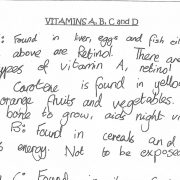 VITAMINS A, B, C and D
: Found in liver, eggs and fish oil
above are Retinol. There are
types of vitamin A, retinol
Carotene is found in yellow
orange fruits and vegetables.
bone to grow, aids night vi
B: found in cereals and
energy. Not to be exposed
: Found in